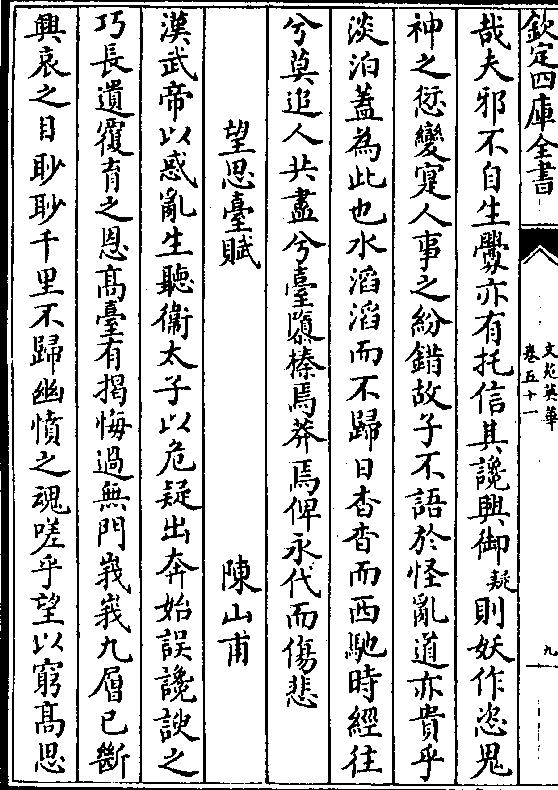 欽定四庫全書
文苑英華
卷五十一
九
哉夫邪不自生釁亦有托信其讒興御疑則妖作恣鬼
神之愆變寔人事之紛錯故子不語於怪亂道亦貴乎
淡泊蓋為此也水滔滔而不歸日杳杳而西馳時經往
兮莫追人共盡兮臺隳榛焉莽焉俾永代而傷悲
望思臺賦 陳山甫
漢武帝以惑亂生聽衞太子以危疑出奔始誤讒諛之
巧長遺覆育之恩髙臺有揭悔過無門峩峩九層已斷
興哀之目眇眇千里不歸幽憤之魂嗟乎望以窮髙思